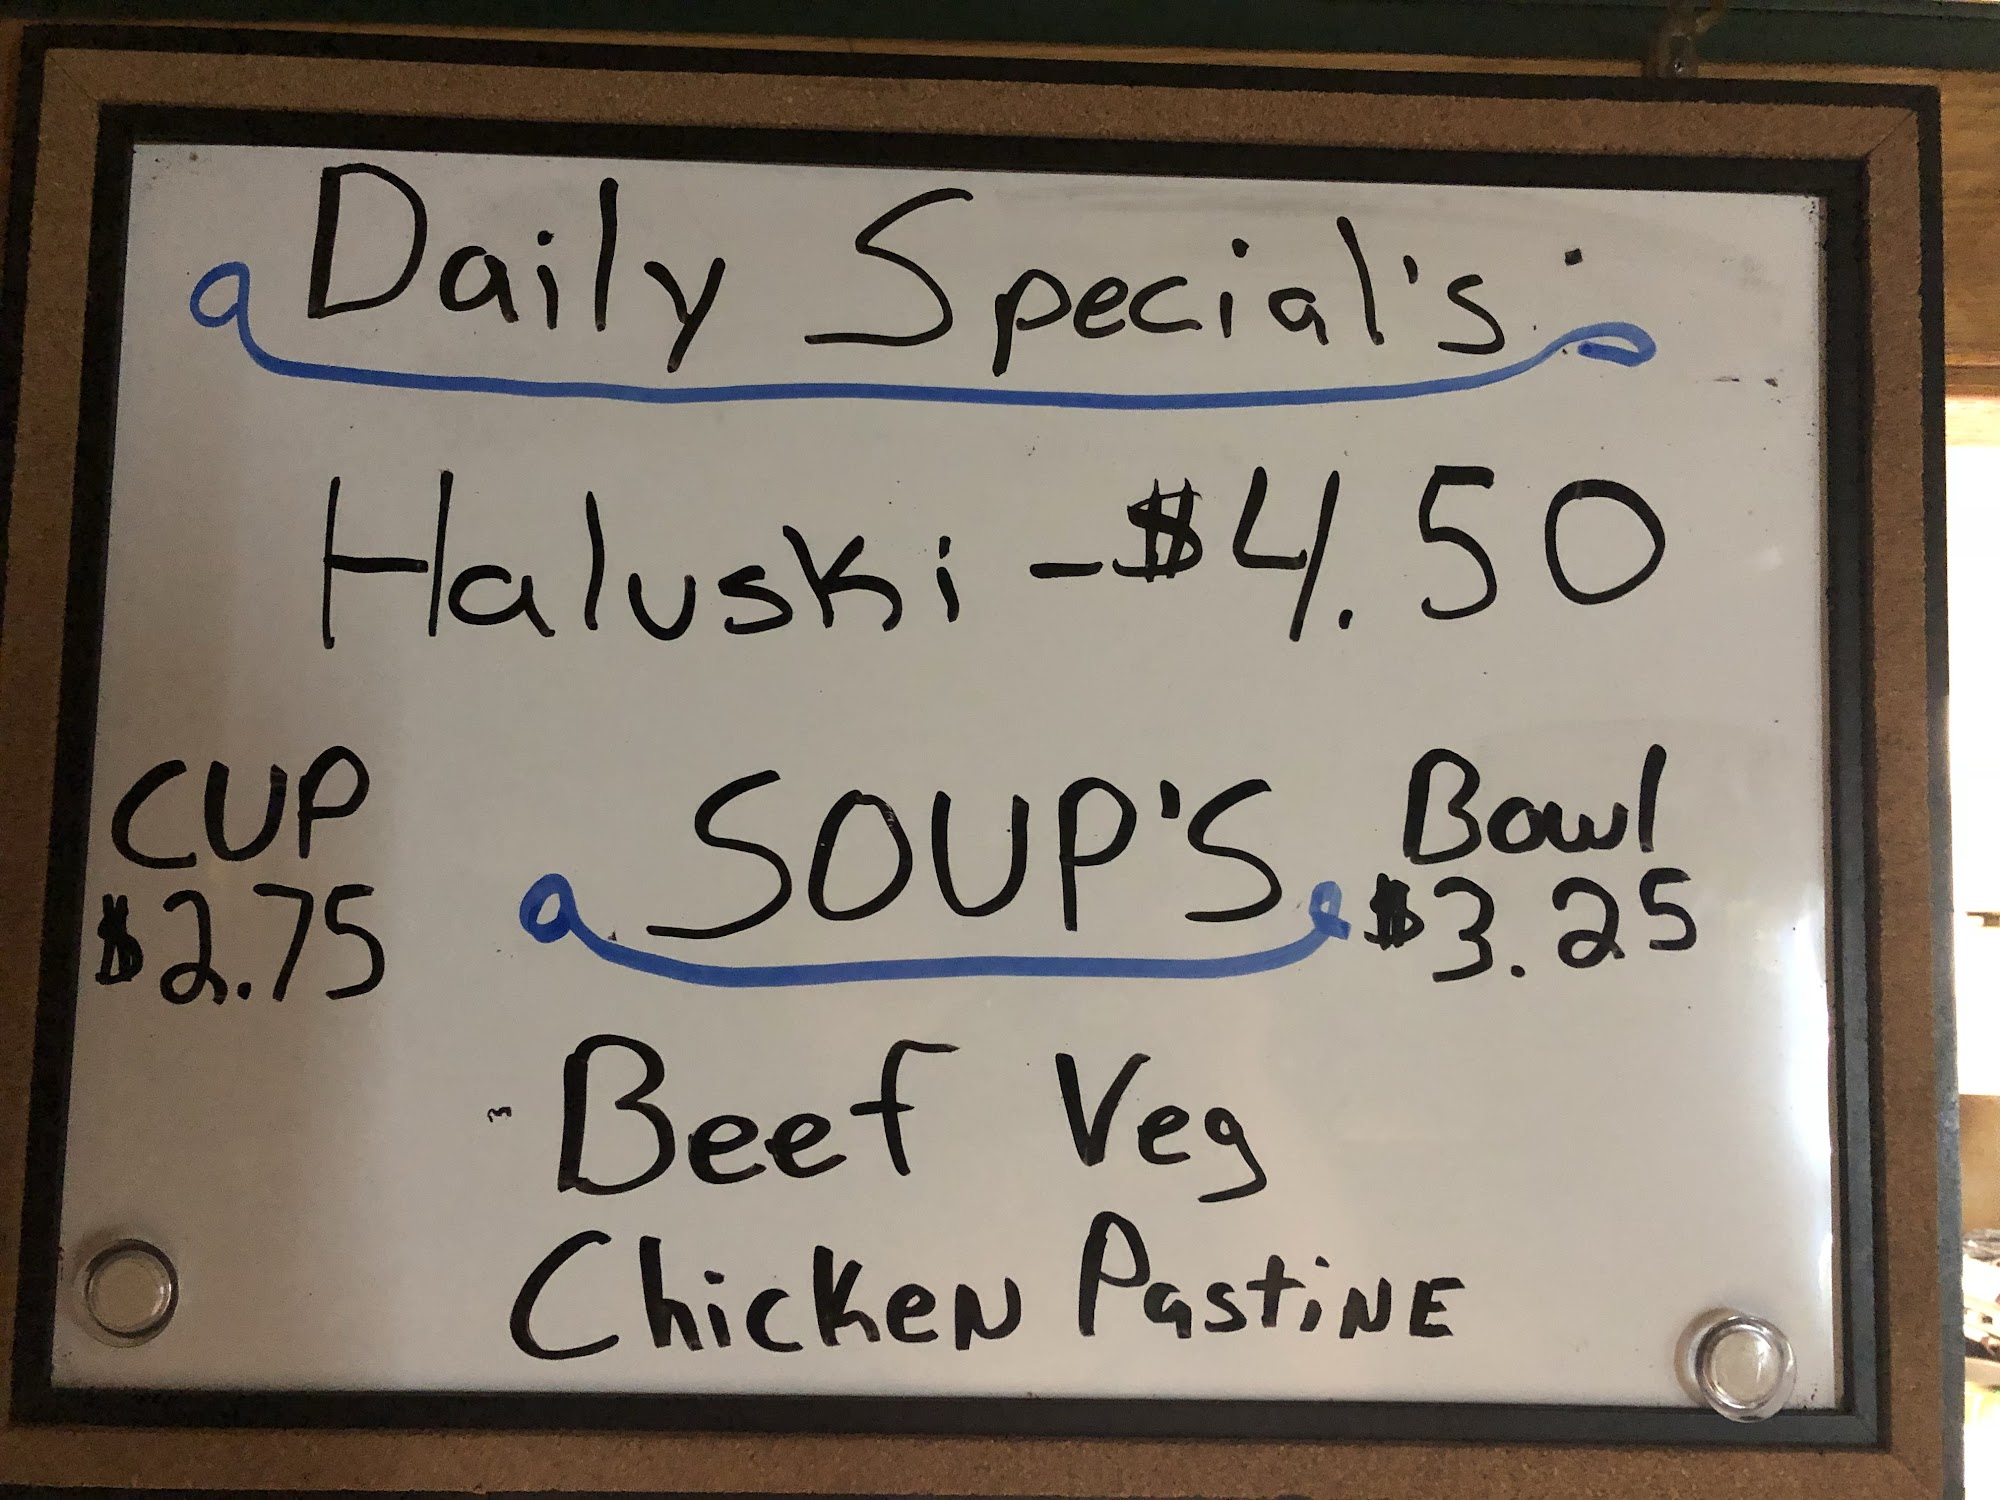 Daily Special's
Haluski - $4.50
CUP
$2.75
SOUP'S
Bowl
$3.25
Beef Veg
Chicken Pastine